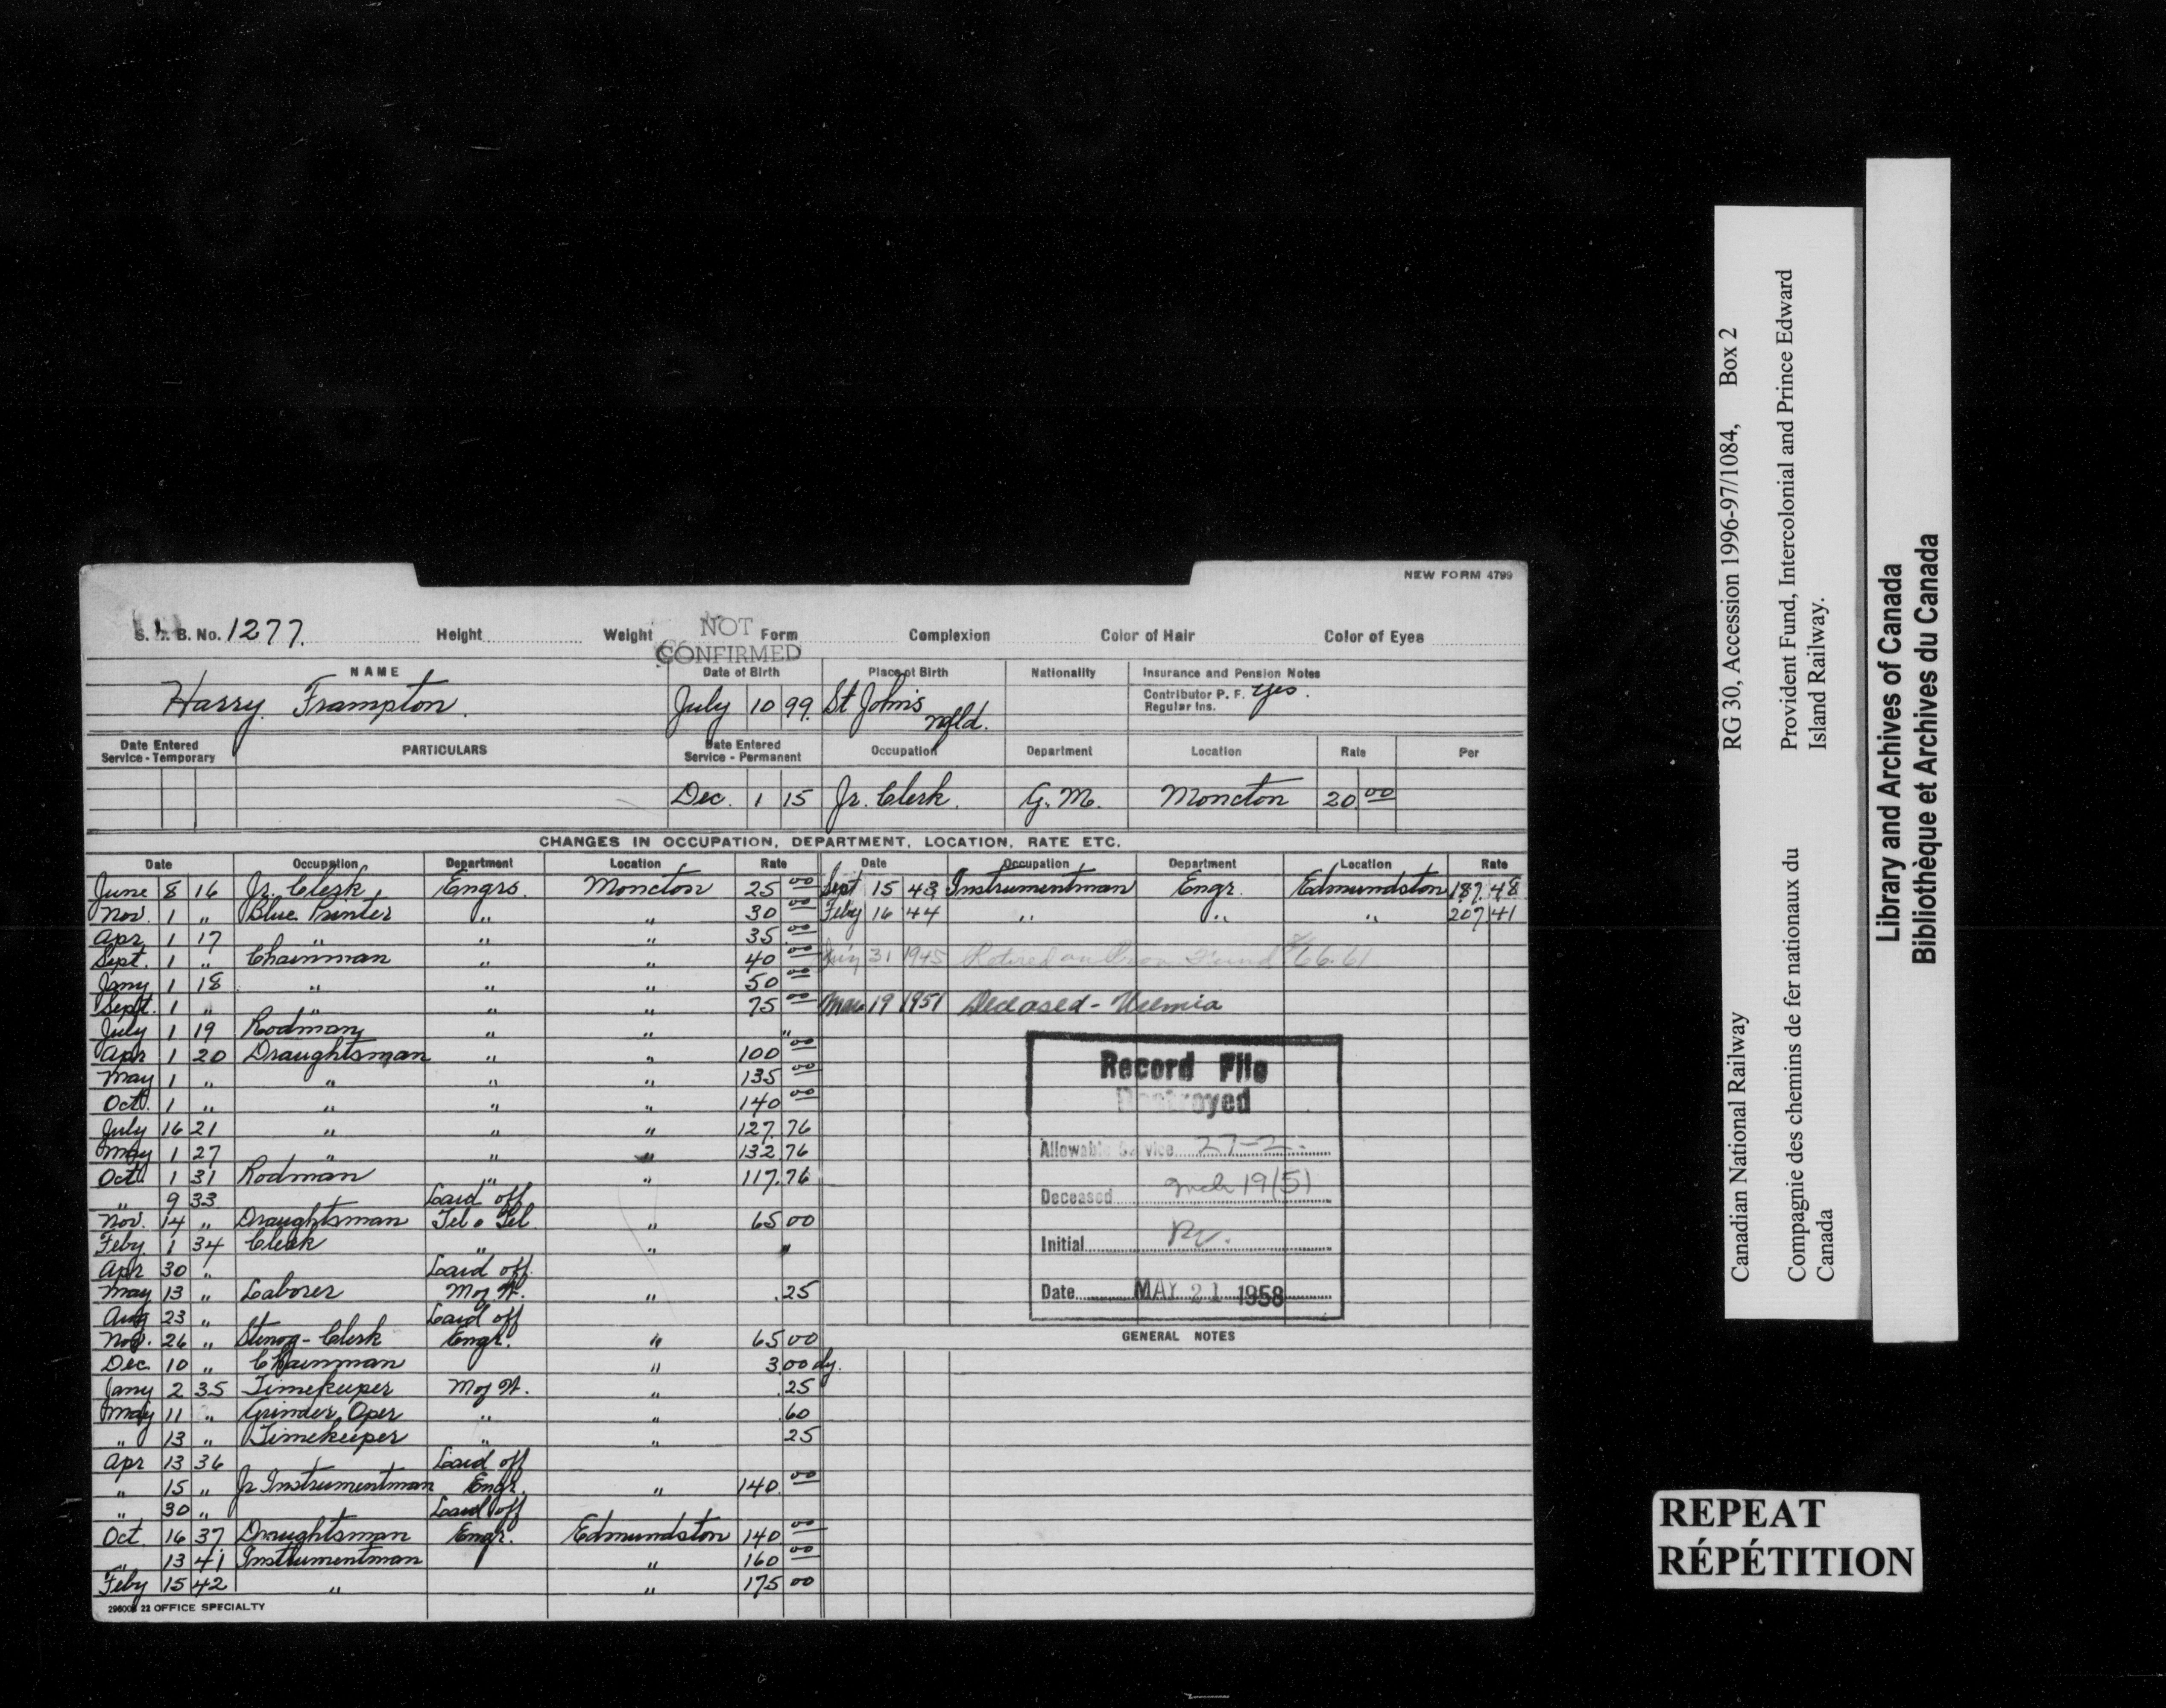 NEW FORM 4799
S. L. B. No. 1277. Height Weight Form Complexion Color of Hair Color of Eyes
NOT CONFIRMED
NAME Date of Birth Place of Birth Nationality Insurance and Pension Notes
Harry Frampton. July 10 99. St John's nfld. Contributor P. F. yes.
Regular Ins.
Date Entered Service - Temporary PARTICULARS Date Entered Service - Permanent Occupation Department Location Rate Per
Dec. 1 15 Jr. Clerk. G. M. Moncton 20 00
CHANGES IN OCCUPATION, DEPARTMENT, LOCATION, RATE ETC.
Date Occupation Department Location Rate
June 8 16 Jr. Clerk, Engrs. Moncton 25 00
Nov. 1 " Blue Printer " " 30 00
Apr 1 17 " " " 35 00
Sept. 1 " Chainman " " 40 00
Jany 1 18 " " " 50 00
Sept. 1 " " " " 75 00
July 1 19 Rodman " " "
Apr 1 20 Draughtsman " " 100 00
May 1 " " " " 135 00
Oct. 1 " " " " 140 00
July 16 21 " " " 127.76
May 1 27 " " " 132 76
Oct 1 31 Rodman " " 117.76
" 9 33 Laid off
Nov. 14 " Draughtsman Tel & Tel. " 65 00
Feby. 1 34 Clerk " " "
Apr 30 " Laid off.
May 13 " Laborer M of W. " .25
Aug 23 " Laid off
Nov. 26 " Stenog - Clerk Engr. " 65 00
Dec. 10 " Chainman " 3.00 dy.
Jany 2 35 Timekeeper M of W. " .25
May 11 " Grinder Oper " " .60
" 13 " Timekeeper " " 25
Apr 13 36 Laid off
" 15 " Jr Instrumentman Engr. " 140. 00
" 30 " Laid off
Oct. 16 37 Draughtsman Engr. Edmundston 140 00
" 13 41 Instrumentman " 160 00
Feby 15 42 " " 175 00
296008 22 OFFICE SPECIALTY
Date Occupation Department Location Rate
Sept 15 43 Instrumentman Engr. Edmundston 187.48
Feby 16 44 " " " 207 41
31 1945 Retired on Prov. Fund $66.61
Mar 19 1951 Deceased - Uremia
Record File
Destroyed
Allowable Service 27-2
Deceased Mch 19/51
Initial
Date MAY 21 1958
GENERAL NOTES
RG 30, Accession 1996-97/1084, Box 2
Canadian National Railway
Provident Fund, Intercolonial and Prince Edward
Island Railway.
Compagnie des chemins de fer nationaux du
Canada
Library and Archives of Canada
Bibliothèque et Archives du Canada
REPEAT
RÉPÉTITION